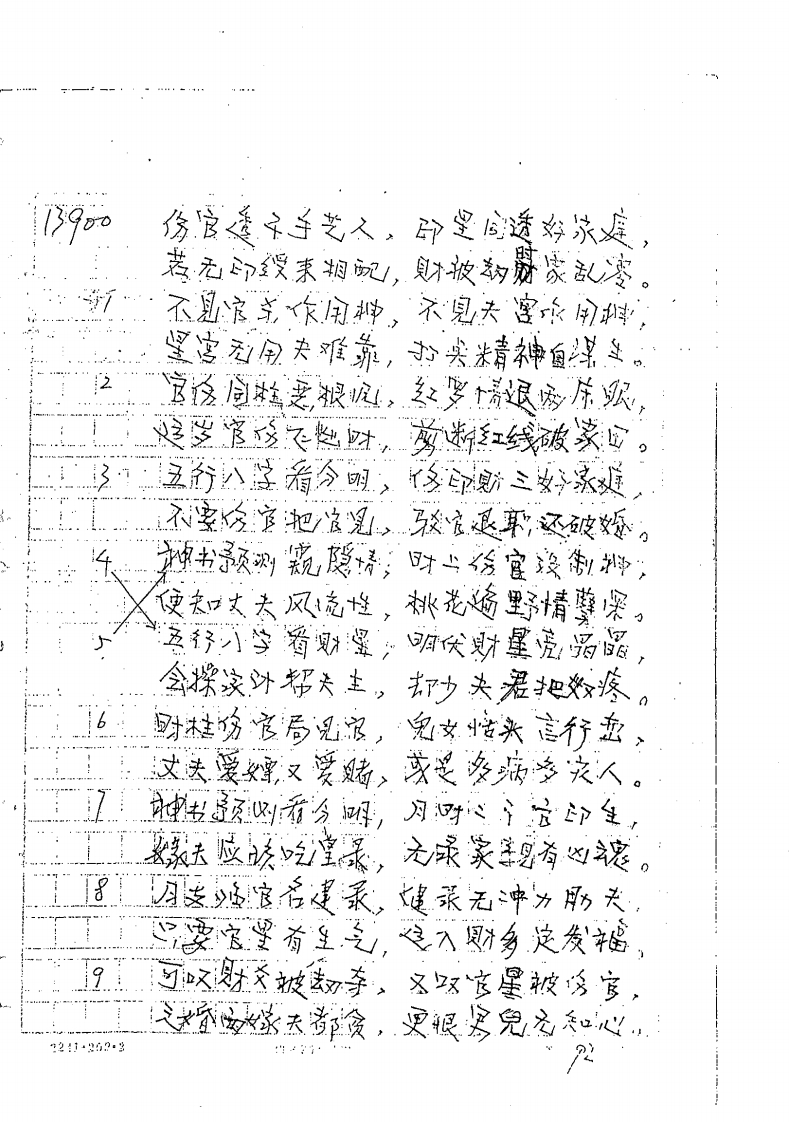 13900 伤官透干手艺人，印星同透好家庭，
若无印绶来相配，财被劫财家乱零。
1 不见官杀作用神，不见夫宫作用神，
星宫无用夫难靠，抖尖精神自谋生。
2 官伤同柱无根，红罗情退两
岁官伤时，剪断红线破家
3 五行八字看分明，伤印财三好家庭，
不要伤官把官见，驳官退职还破婚。
4 神书预测窥隐情，时上伤官没制神，
便知丈夫风流性，桃花遍野情孽深。
5 五行八字看财星，明伏财星亮晶晶，
会操家计帮夫生，却少夫君把奴疼。
6 时柱伤官局见官，儿女头言行
丈夫爱嫖又爱赌，或是多病多灾人。
7 神书预测看分明，月时二干官印生，
嫁夫应该吃皇录，无录家有凶
8 月支临官名建录，健录无冲力助夫，
只要官星有生气，入财多定发福，
9 可叹财爻被劫夺，又叹官星被伤官，
婚两嫁夫都贫，更恨男儿无知心。
2241·202·3
92